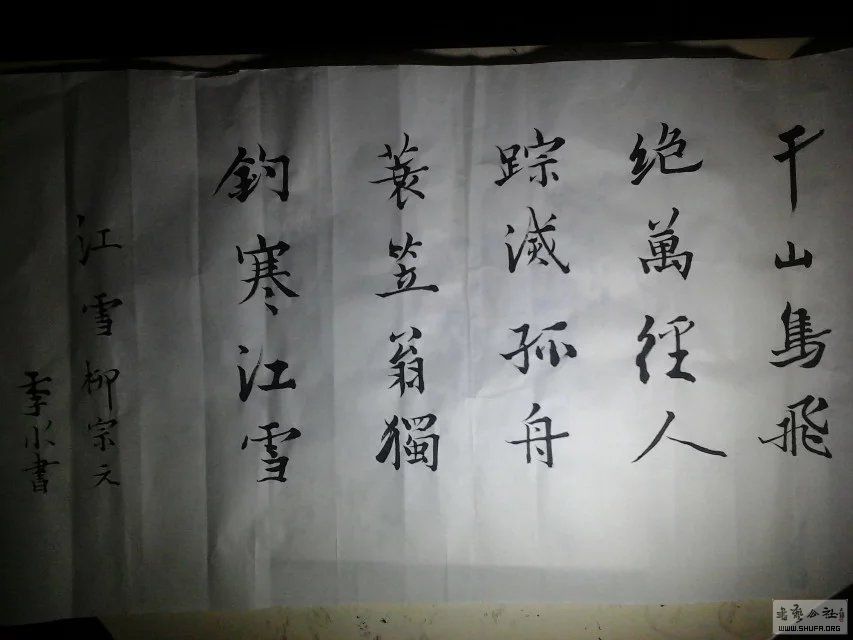 千山鳥飛
绝萬徑人
踪滅孤舟
蓑笠翁獨
釣寒江雪
江雪柳宗元
季水書
WWW.SHUFA.ORG